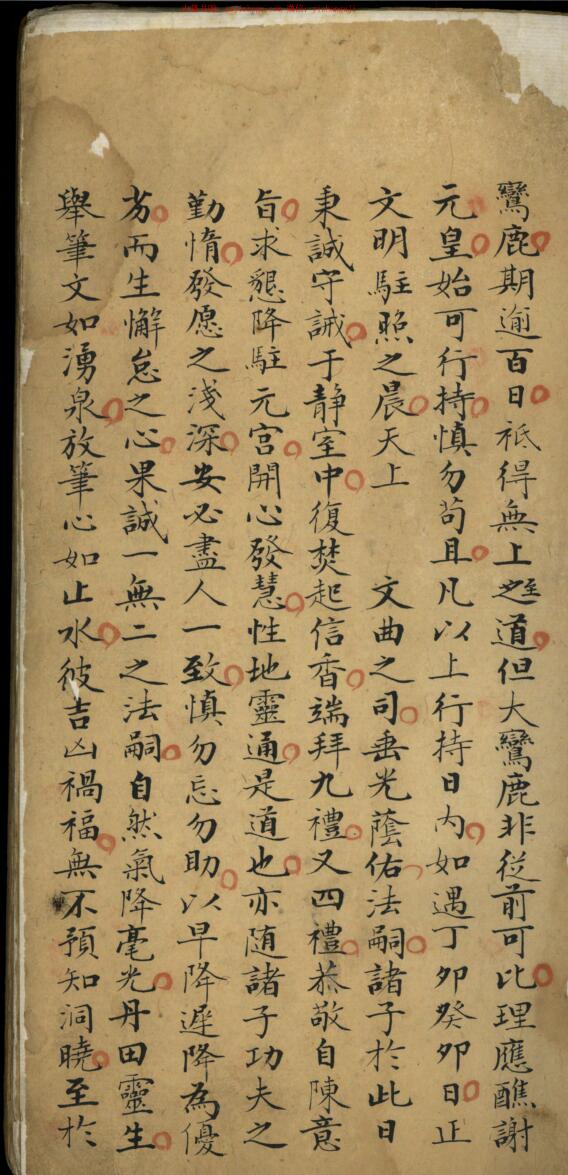 鸞鹿期逾百日祗得無上之至道但大鸞鹿非從前可比理應醮謝
元皇始可行持慎勿苟且凡以上行持日内如遇丁卯癸卯日正
文明駐照之晨天上 文曲之司垂光蔭佑法嗣諸子於此日
秉誠守誡于静室中復焚起信香端拜九禮又四禮恭敬自陳意
旨求懇降駐元宫開心發慧性地靈通是道也亦随諸子功夫之
勤惰發愿之淺深安必盡人一致慎勿忘勿助以早降遲降為優
劣而生懈怠之心果誠一無二之法嗣自然氣降毫光丹田靈生
舉筆文如湧泉放筆心如止水彼吉凶禍福無不預知洞曉至於